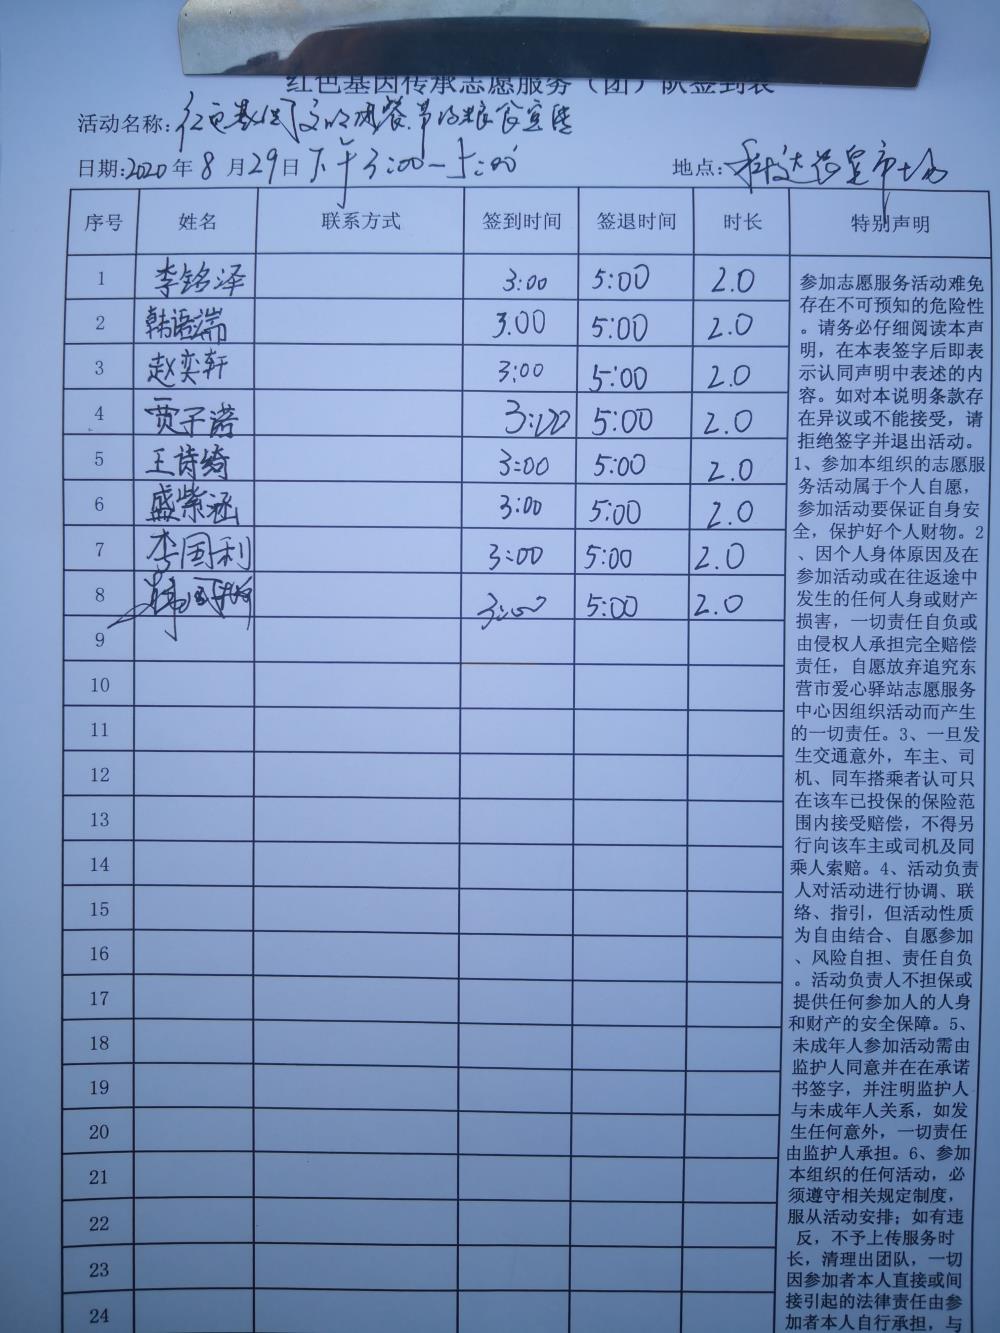 红色基因传承志愿服务（团）队签到表
活动名称：红色基因文明用餐、节约粮食宣传
日期：2020年8月29日下午3:00—5:00 地点：
序号 姓名 联系方式 签到时间 签退时间 时长 特别声明
1 李铭泽 3:00 5:00 2.0
2 韩语端 3.00 5:00 2.0
3 赵奕轩 3:00 5:00 2.0
4 贾子诺 3:00 5:00 2.0
5 王诗绮 3:00 5:00 2.0
6 盛紫涵 3:00 5:00 2.0
7 李国利 3:00 5:00 2.0
8 3:00 5:00 2.0
9
10
11
12
13
14
15
16
17
18
19
20
21
22
23
24
参加志愿服务活动难免
存在不可预知的危险性
。请务必仔细阅读本声
明，在本表签字后即表
示认同声明中表述的内
容。如对本说明条款存
在异议或不能接受，请
拒绝签字并退出活动。
1、参加本组织的志愿服
务活动属于个人自愿，
参加活动要保证自身安
全，保护好个人财物。2
、因个人身体原因及在
参加活动或在往返途中
发生的任何人身或财产
损害，一切责任自负或
由侵权人承担完全赔偿
责任，自愿放弃追究东
营市爱心驿站志愿服务
中心因组织活动而产生
的一切责任。3、一旦发
生交通意外，车主、司
机、同车搭乘者认可只
在该车已投保的保险范
围内接受赔偿，不得另
行向该车主或司机及同
乘人索赔。4、活动负责
人对活动进行协调、联
络、指引，但活动性质
为自由结合、自愿参加
、风险自担、责任自负
。活动负责人不担保或
提供任何参加人的人身
和财产的安全保障。5、
未成年人参加活动需由
监护人同意并在在承诺
书签字，并注明监护人
与未成年人关系，如发
生任何意外，一切责任
由监护人承担。6、参加
本组织的任何活动，必
须遵守相关规定制度，
服从活动安排；如有违
反，不予上传服务时
长，清理出团队，一切
因参加者本人直接或间
接引起的法律责任由参
加者本人自行承担，与